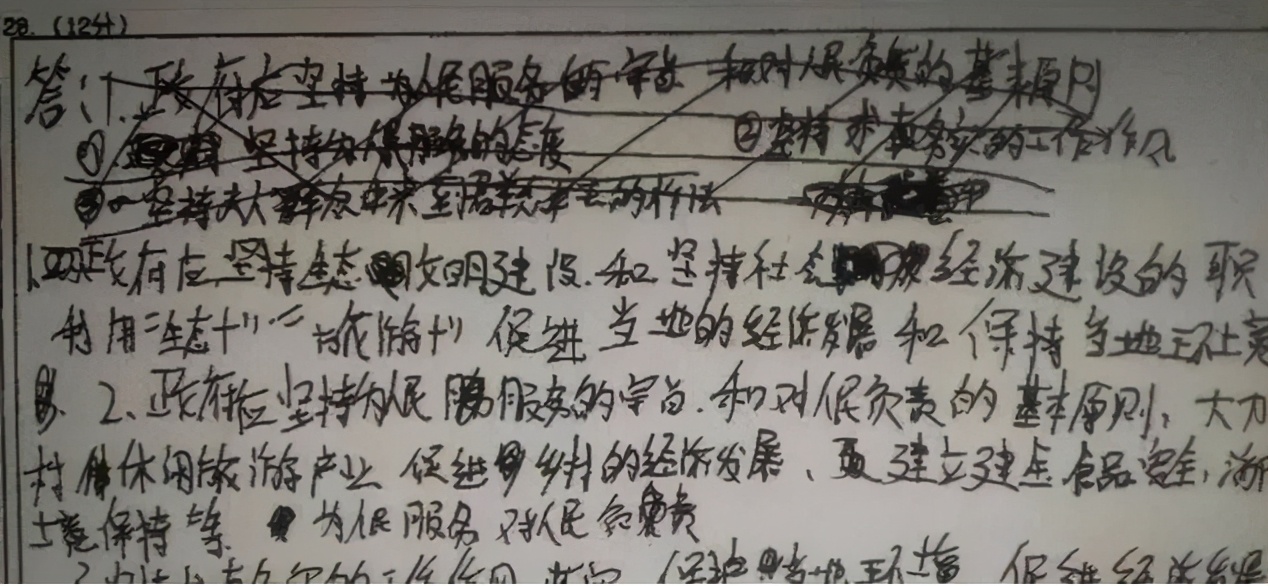 28.(12分)
答:1.政府应坚持为人民服务的宗旨和对人民负责的基本原则
① 坚持为人民服务的态度 ②坚持求真务实的工作作风
③ 坚持从群众中来到群众中去的
1.政府应坚持生态文明建设.和坚持社会经济建设的职
利用"生态+""旅游+"促进当地的经济发展和保持当地环境
2、政府应坚持为人民服务的宗旨.和对人民负责的基本原则、大力
村休闲旅游产业 促进乡村的经济发展、建立健全食品安全、
境保持等. 为人民服务 对人民负责
的工作作风 保护当地环境 促进经济发展